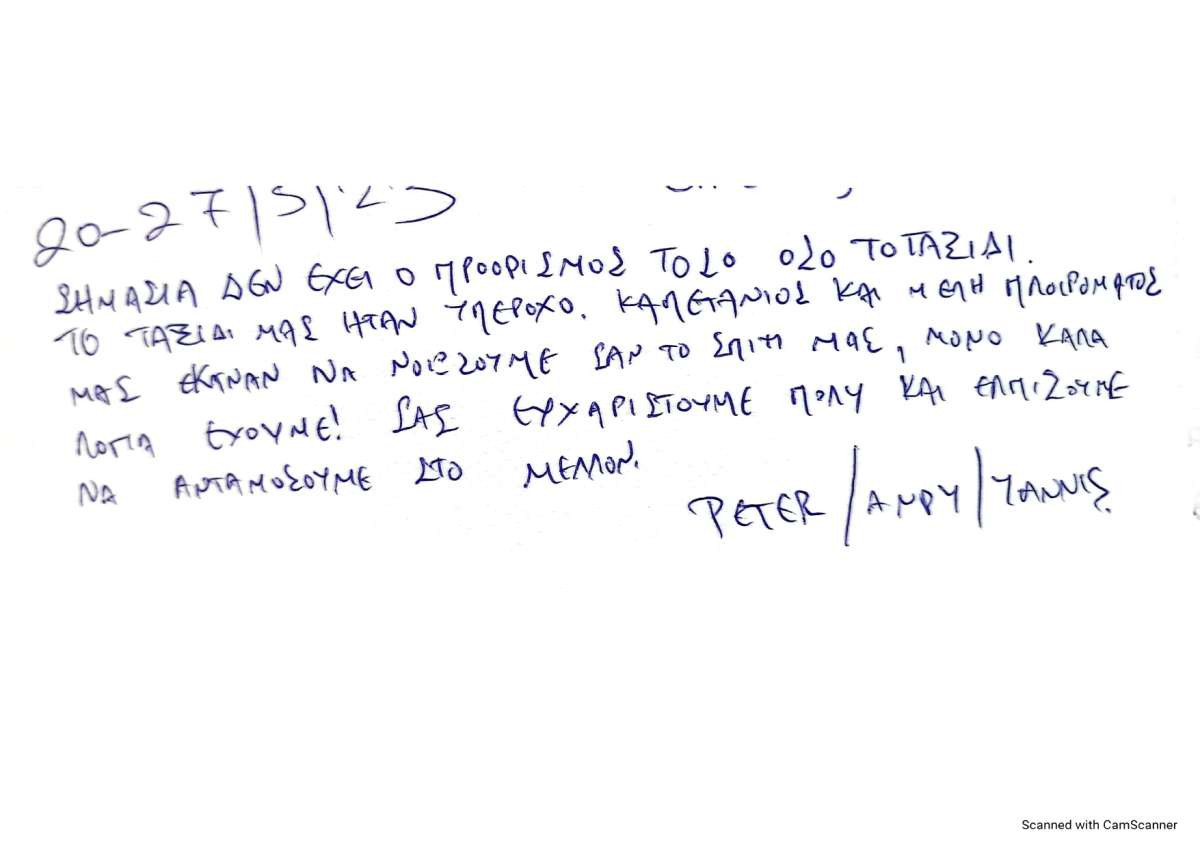 20-27/5/23
ΣΗΜΑΣΙΑ ΔΕΝ ΕΧΕΙ Ο ΠΡΟΟΡΙΣΜΟΣ ΤΟΣΟ ΟΣΟ ΤΟ ΤΑΞΙΔΙ.
ΤΟ ΤΑΞΙΔΙ ΜΑΣ ΗΤΑΝ ΥΠΕΡΟΧΟ. ΚΑΠΕΤΑΝΙΟΣ ΚΑΙ ΜΕΛΗ ΠΛΟΙΡΟΜΑΤΟΣ
ΜΑΣ ΕΚΑΝΑΝ ΝΑ ΝΟΙΩΣΟΥΜΕ ΣΑΝ ΤΟ ΣΠΙΤΙ ΜΑΣ, ΜΟΝΟ ΚΑΛΑ
ΛΟΓΙΑ ΕΧΟΥΜΕ! ΣΑΣ ΕΥΧΑΡΙΣΤΟΥΜΕ ΠΟΛΥ ΚΑΙ ΕΛΠΙΖΟΥΜΕ
ΝΑ ΑΝΤΑΜΟΣΟΥΜΕ ΣΤΟ ΜΕΛΛΟΝ.
PETER/ANDY/YANNIS
Scanned with CamScanner